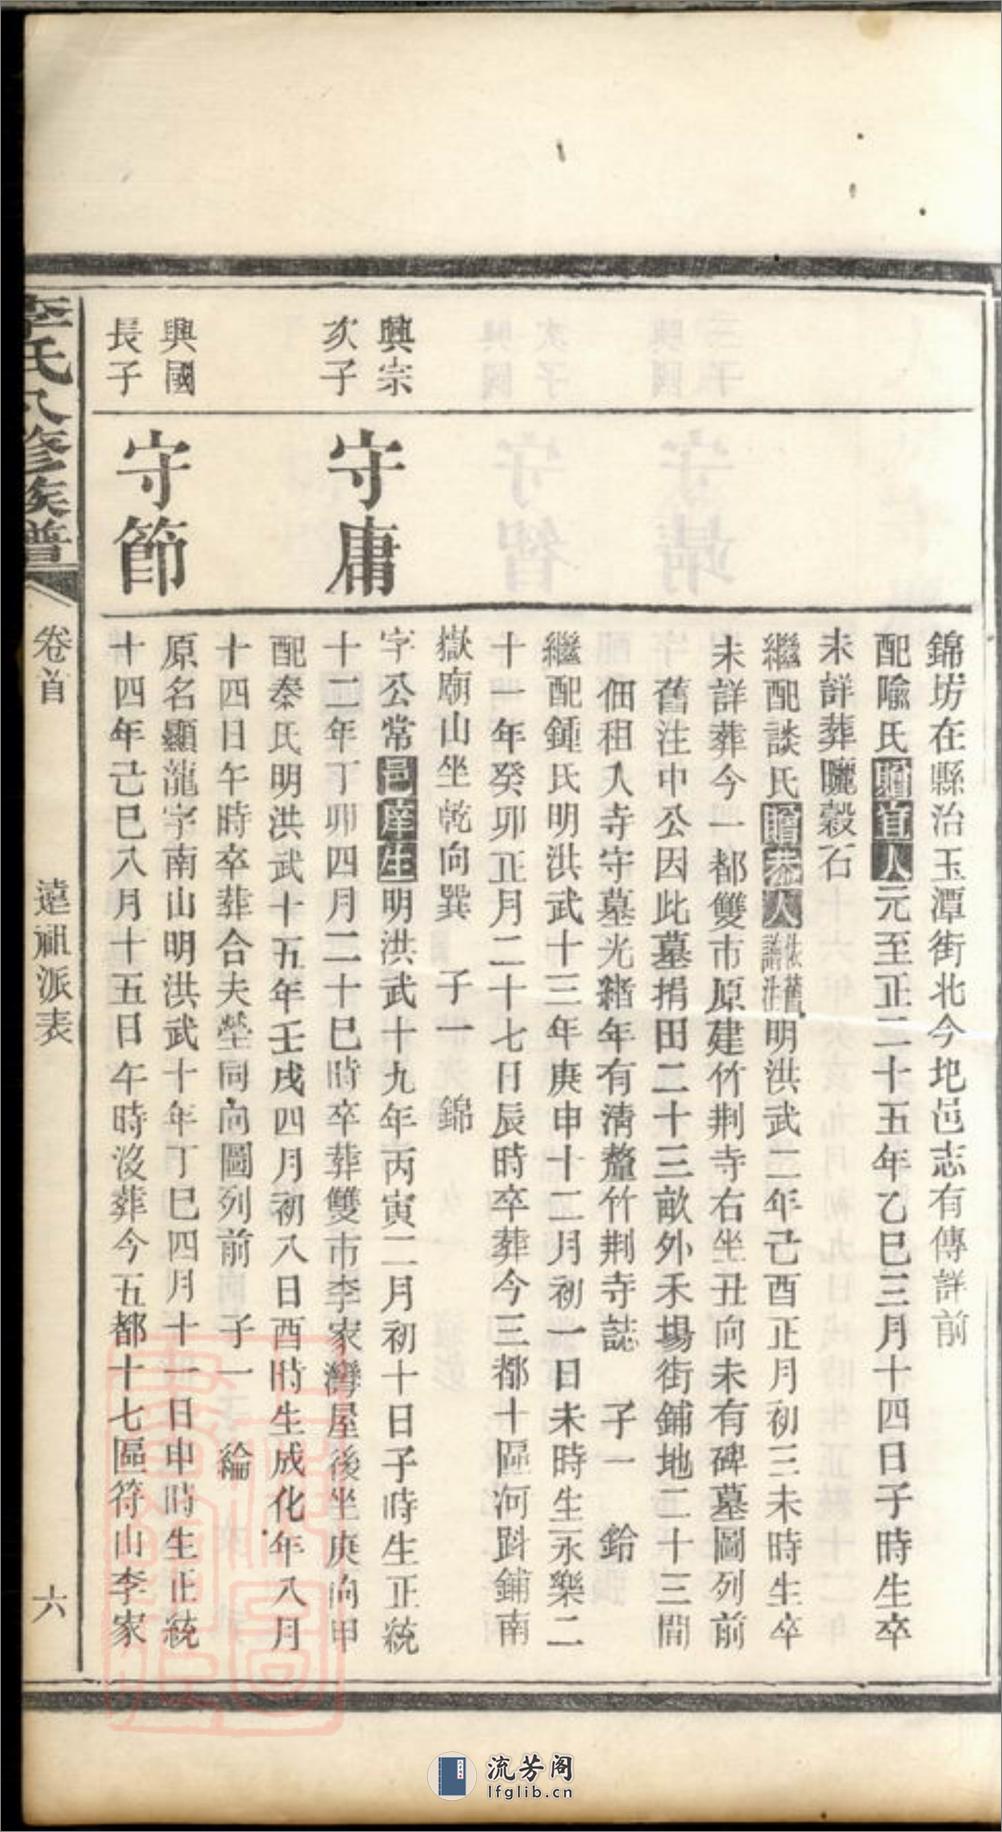 錦坊在縣治玉潭街北今圯邑志有傳詳前
配喻氏贈宜人元至正二十五年乙巳三月十四日子時生卒
未詳葬曬穀石
繼配談氏贈恭人明洪武二年己酉正月初三未時生卒
未詳葬今一都雙市原建竹荆寺右坐丑向未有碑墓圖列前
舊注中公因此墓捐田二十三畝外禾場街鋪地二十三間
佃租入寺守墓光緒年有清釐竹荆寺誌 子一 鈴
繼配鍾氏明洪武十三年庚申十二月初一日未時生永樂二
十一年癸卯正月二十七日辰時卒葬今三都十區河㪷鋪南
嶽廟山坐乾向巽 子一 錦
興宗
次子
守庸
字公常邑庠生明洪武十九年丙寅二月初十日子時生正統
十二年丁卯四月二十巳時卒葬雙市李家灣屋後坐庚向甲
配秦氏明洪武十五年壬戌四月初八日酉時生成化年八月
十四日午時卒葬合夫塋同向圖列前 子一 綸
興國
長子
守節
原名顯龍字南山明洪武十年丁巳四月十一日申時生正統
十四年己巳八月十五日午時沒葬今五都十七區符山李家
李氏八修族譜
卷首
遠祖派表
六
流芳阁
lfglib.cn